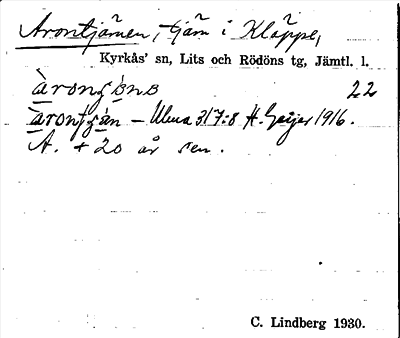 Arontjärnen, tjärn i Kläppe,
Kyrkås' sn, Lits och Rödöns tg, Jämtl. l.
22
– Ulma 317:8 H. Geijer 1916.
A. + 20 år sen.
C. Lindberg 1930.